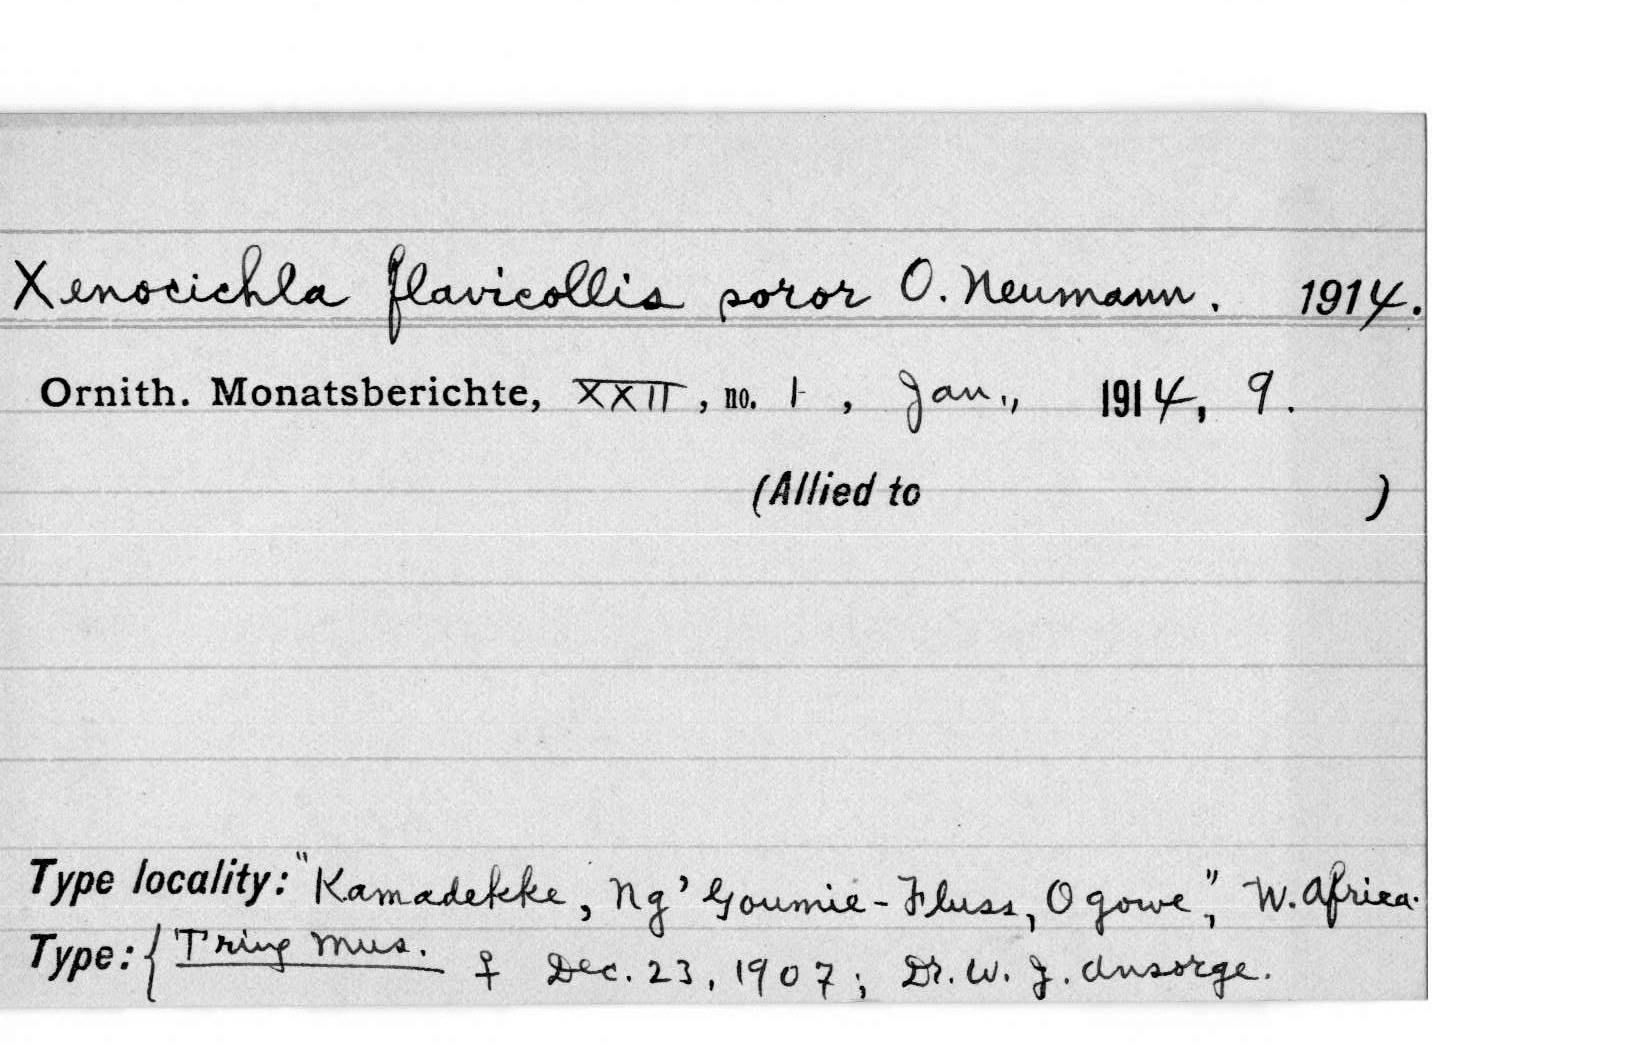 Xenocichla flavicollis soror O. Neumann. 1914.
Ornith. Monatsberichte, XXII, no. 1, Jan., 1914, 9.
(Allied to )
Type locality: "Kamadekke, Ng'Goumie-Fluss, Ogowe", W. Africa.
Type: { Tring Mus. ♀ Dec. 23, 1907; Dr. W. J. Ansorge.